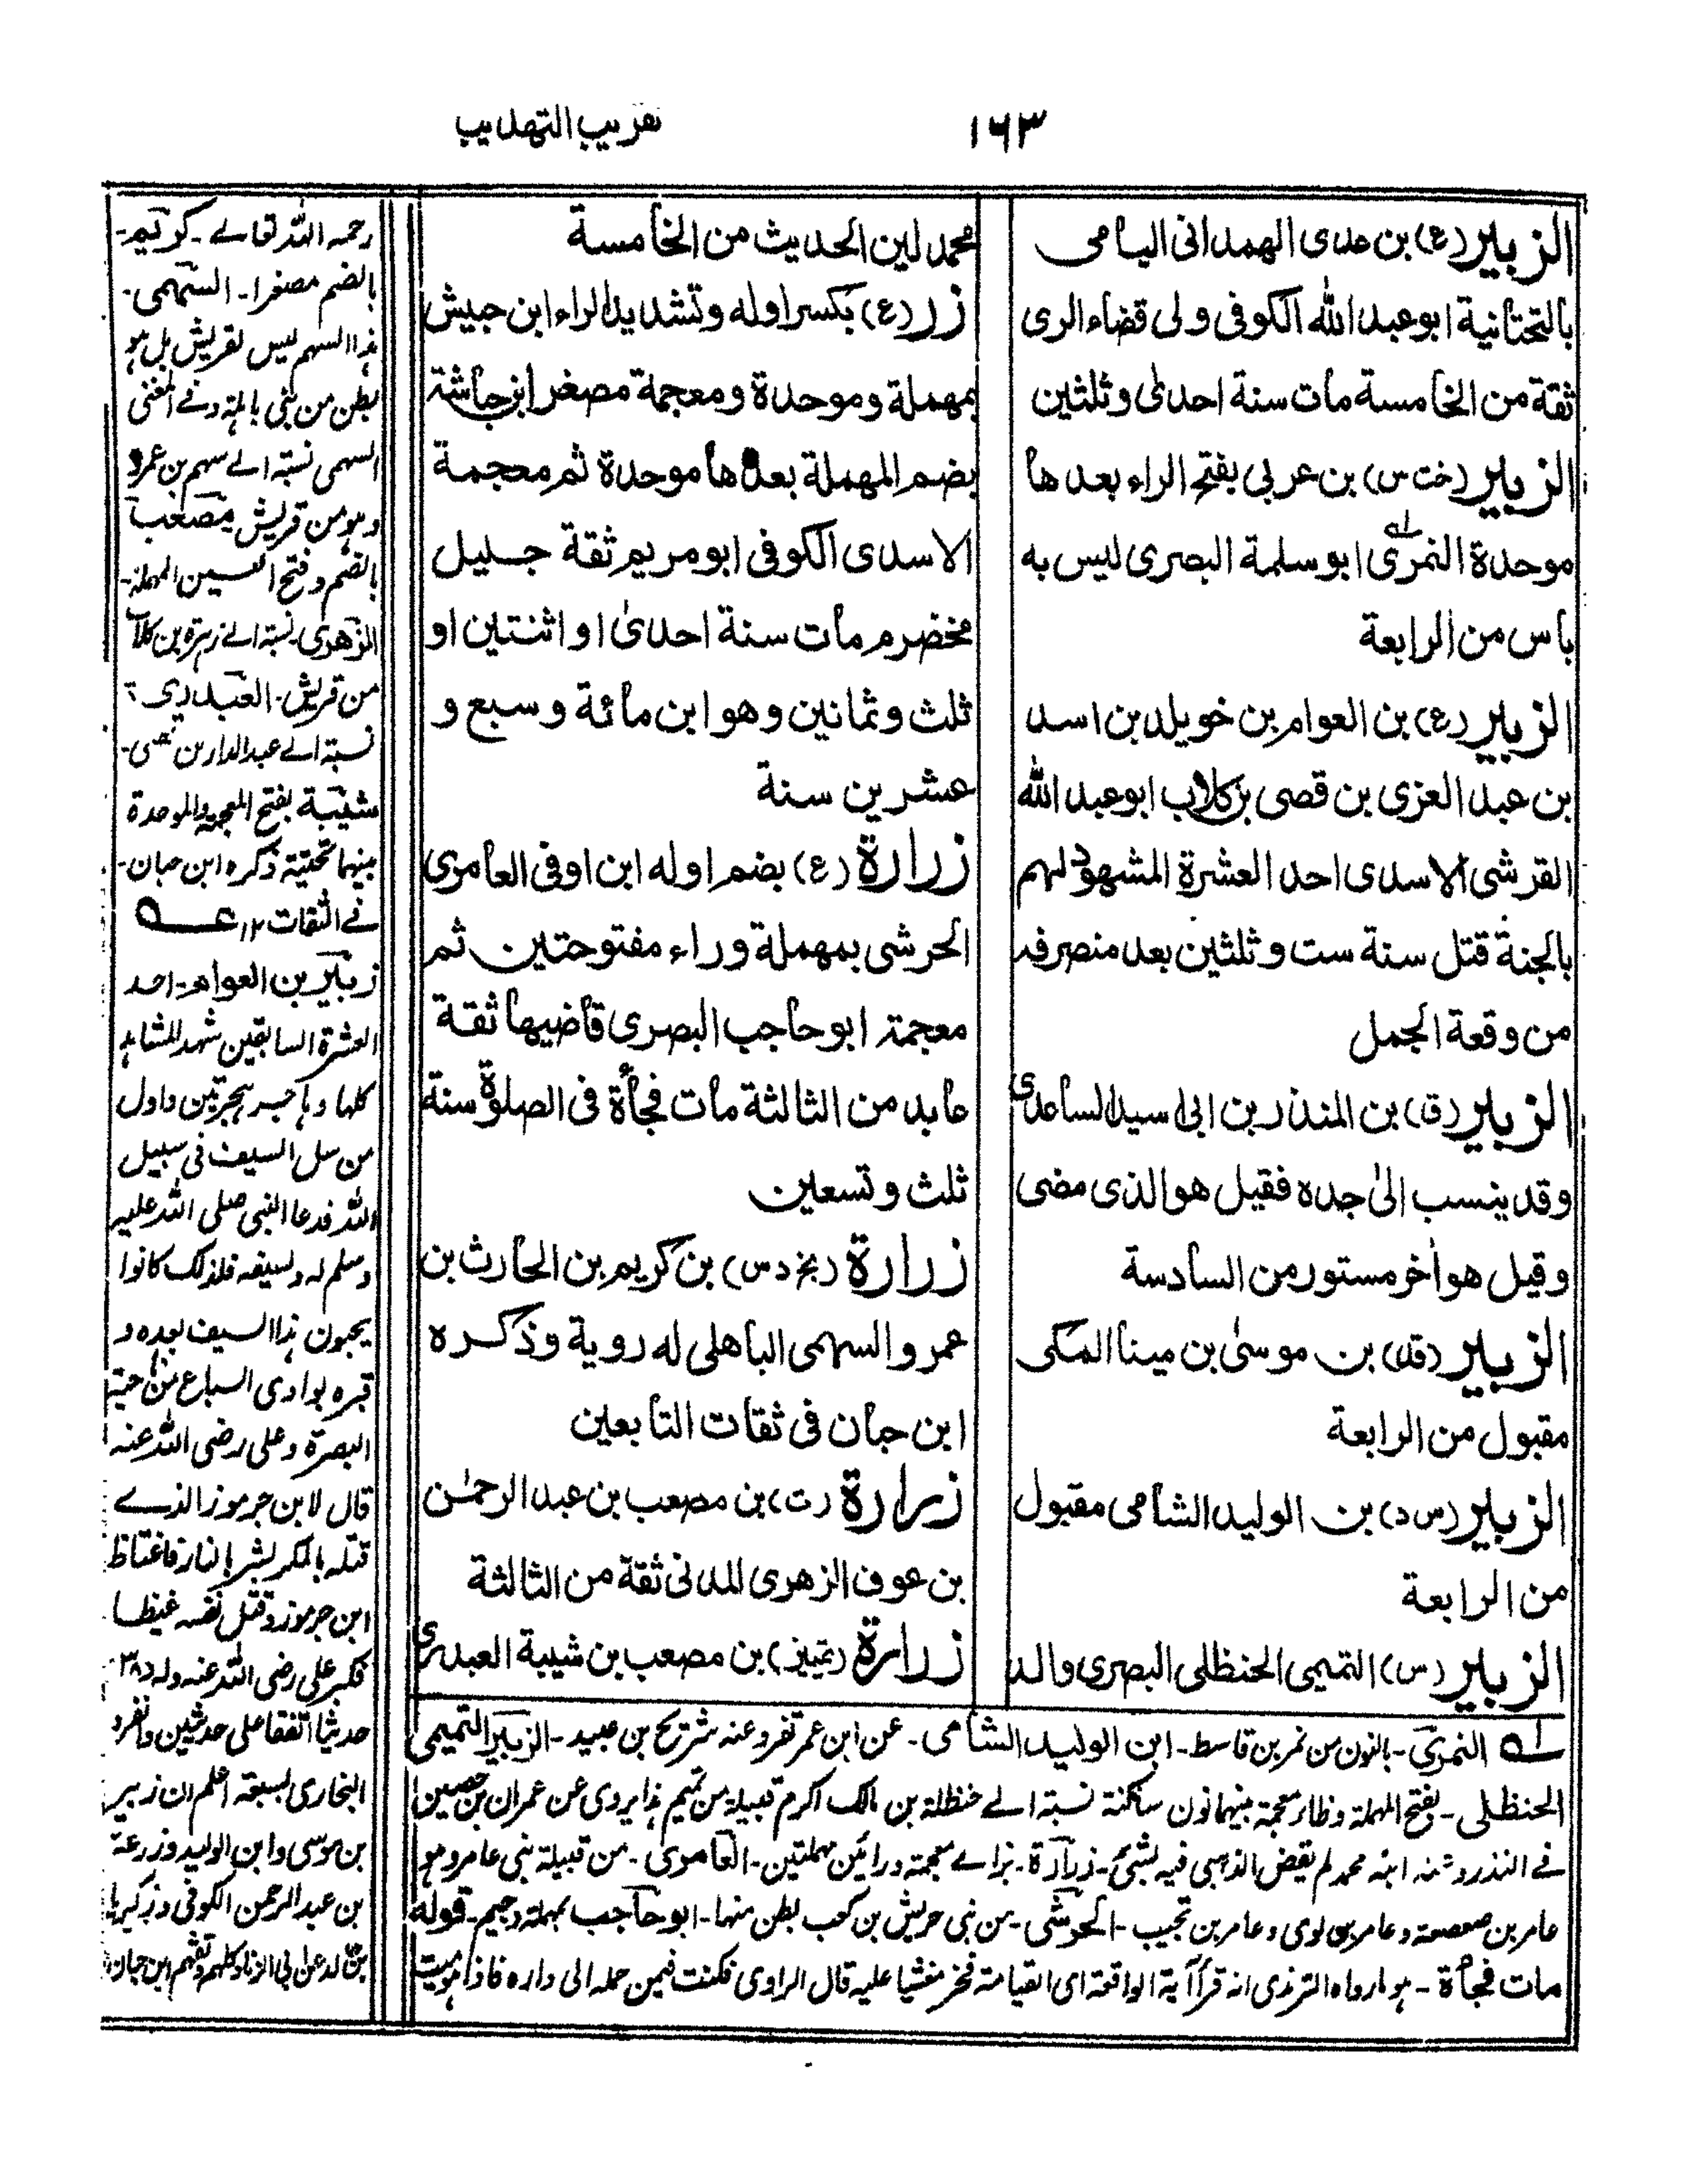 ١٦٣
تقريب التهذيب
الزبير (ع) بن عدى الهمدانى اليامى
بالتحتانية ابو عبد الله الكوفى ولى قضاء الرى
ثقة من الخامسة مات سنة احدى وثلثين
الزبير (خت س) بن عربي بفتح الراء بعدها
موحدة النمرى ابو سلمة البصرى ليس به
باس من الرابعة
الزبير (ع) بن العوام بن خويلد بن اسد
بن عبد العزى بن قصى بن كلاب ابو عبد الله
القرشى الاسدى احد العشرة المشهود لهم
بالجنة قتل سنة ست وثلثين بعد منصرفه
من وقعة الجمل
الزبير (ق) بن المنذر بن ابى اسيد الساعدى
وقد ينسب الى جده فقيل هو الذى مضى
وقيل هو أخر مستور من السادسة
الزبير (قد) بن موسى بن مينا المكى
مقبول من الرابعة
الزبير (س د) بن الوليد الشامى مقبول
من الرابعة
الزبير (س) التميمى الحنظلى البصرى والد
محمد لين الحديث من الخامسة
زر (ع) بكسر اوله وتشديد الراء ابن حبيش
بمهملة وموحدة ومعجمة مصغر ابن حباشة
بضم المهملة بعدها موحدة ثم معجمة
الاسدى الكوفى ابو مريم ثقة جليل
مخضرم مات سنة احدى او اثنتين او
ثلث وثمانين وهو ابن مائة وسبع و
عشرين سنة
زرارة (ع) بضم اوله ابن اوفى العامرى
الحرشى بمهملة وراء مفتوحتين ثم
معجمة ابو حاجب البصرى قاضيها ثقة
عابد من الثالثة مات فجأة فى الصلوة سنة
ثلث وتسعين
زرارة (بخ د س) بن كريم بن الحارث بن
عمرو السهمى الباهلى له روية وذكره
ابن حبان فى ثقات التابعين
زرارة (ت) بن مصعب بن عبد الرحمٰن
بن عوف الزهرى المدنى ثقة من الثالثة
زرارة (تمييز) بن مصعب بن شيبة العبدرى
النمرى - بالنون من نمر بن قاسط - ابن الوليد الشامى - عن ابن عمر تفرد عنه شريح بن عبيد - الزبير التميمى
الحنظلى - بفتح المهملة وظاء معجمة بينهما نون ساكنة نسبة الے حنظلة بن مالك اكرم قبيلة من تميم هذا يروى عن عمران بن حصين
فے النذر وعنه ابنه محمد لم يقض الذهبى فيه بشئ - زرارة - بزاے معجمة ورائين مهملتين - العامرى - من قبيلة بنى عامر وهو
عامر بن صعصعة وعامر بن لوى وعامر بن تجيب - الحرشى - من بنى حريش بن كعب بطن منها - ابو حاجب بمهملة وجيم - قوله
مات فجأة - هو ما رواه الترمذى انه قرأ آية الواقعة اى القيامة فخر مغشيا عليه قال الراوى فكنت فيمن حمله الى داره فاذا هو ميت
رحمه الله تعالے - كريم -
بالضم مصغرا - السهمى -
هذا السهم ليس لقريش بل هو
بطن من بنى باهلة وفے المغنى
السهمى نسبة الے سهم بن عمرو
وهو من قريش مصعب
بالضم وفتح العسين المهملة -
الزهرى نسبة الے زهرة بن كلاب
من قريش - العبدرى :
نسبة الے عبد الدار بن قصى -
شيبة بفتح المعجمة والموحدة
بينهما تحتية ذكره ابن حبان -
فے الثقات ١٢
زبير بن العوام - احد
العشرة السابقين شهد المشاهد
كلها وهاجر هجرتين واول
من سل السيف فى سبيل
الله فدعا النبى صلى الله عليه
وسلم له ولسيفه فلذلك كانوا
يحبون هذا السيف بعده و
قبره بوادى السباع من ناحية
البصرة وعلى رضى الله عنه
قال لابن جرموز الذے
قتله بالمكر بشر بالنار فاغتاظ
ابن جرموز وقتل نفسه غيظا
فكبر على رضى الله عنه وله ٣٨
حديثا اتفقا على حديثين وانفرد
البخارى بسبعة اعلم ان زبير
بن موسى وابن الوليد وزرعة
بن عبد الرحمن الكوفى وزكريا